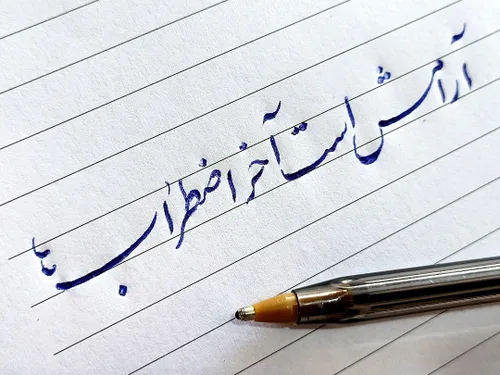 آرامش است آخر اضطراب‌ها